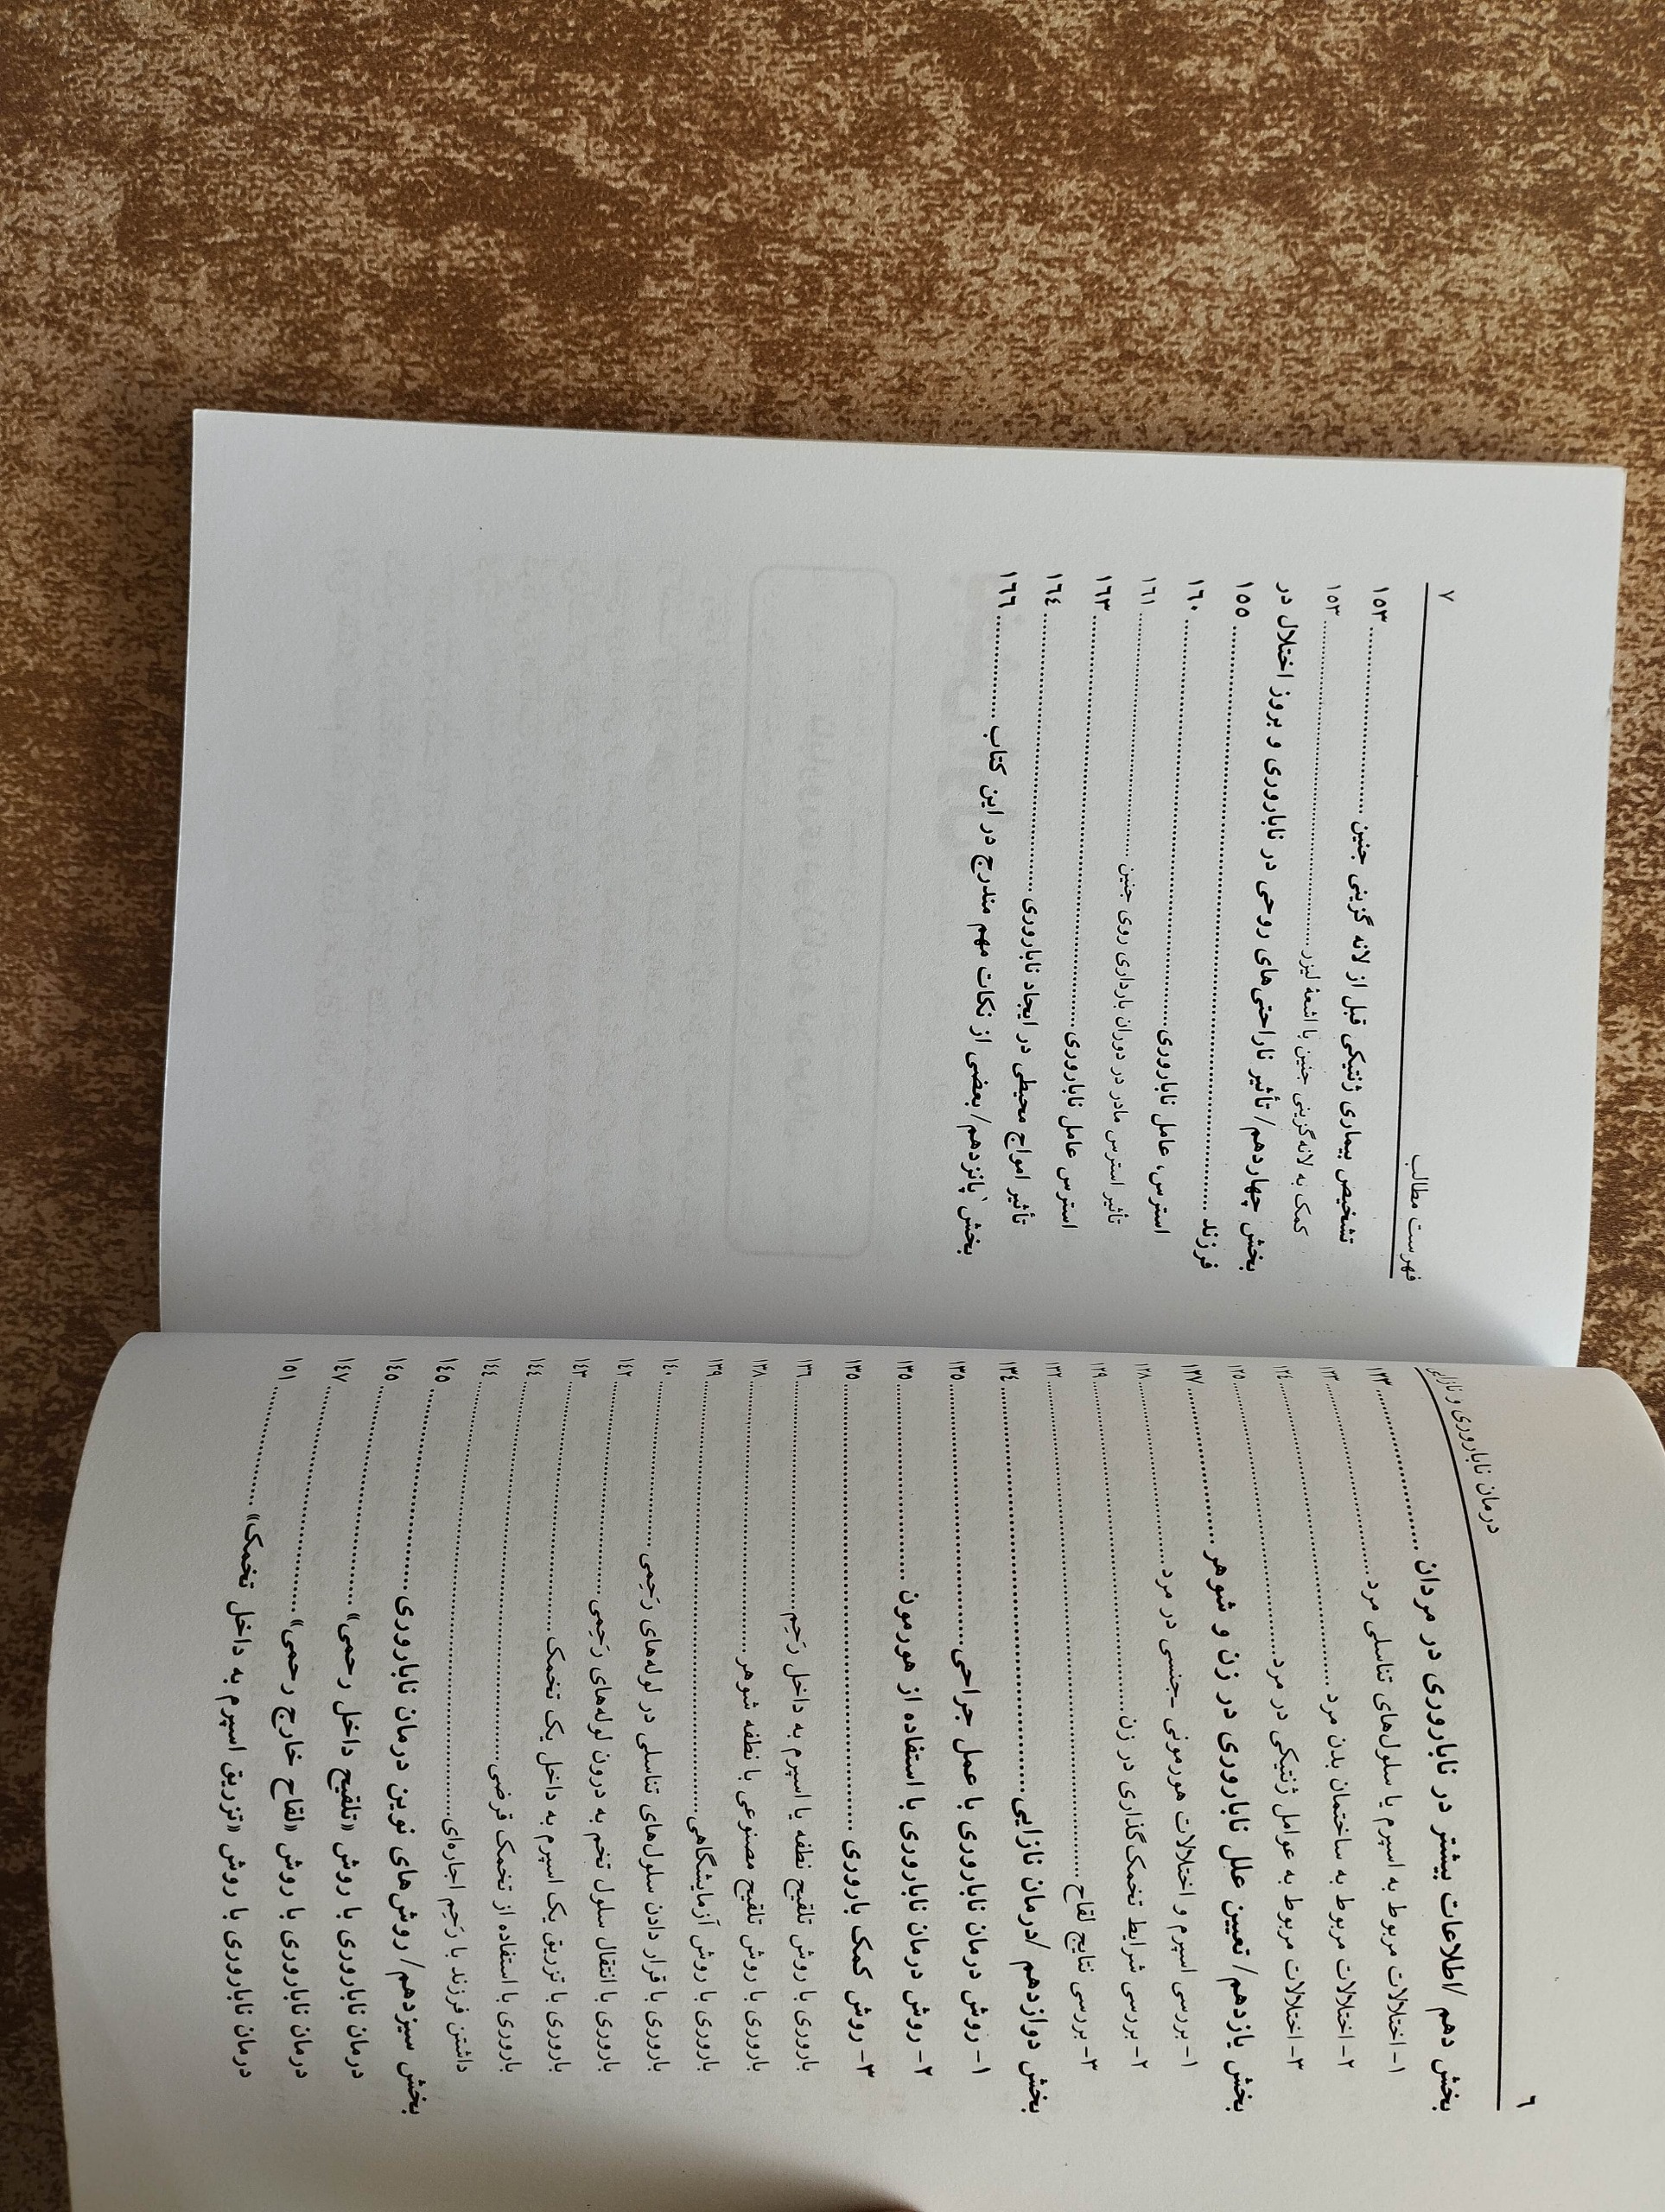 ٦
درمان ناباروری و نازایی
بخش دهم /اطلاعات بیشتر در ناباروری در مردان ..... ۱۲۳
۱- اختلالات مربوط به اسپرم یا سلول‌های تناسلی مرد ..... ۱۲۳
۲- اختلالات مربوط به ساختمان بدن مرد ..... ۱۲۳
۳- اختلالات مربوط به عوامل ژنتیکی در مرد ..... ۱۲٤
بخش یازدهم/ تعیین علل ناباروری در زن و شوهر ..... ۱۲۷
۱- بررسی اسپرم و اختلالات هورمونی -جنسی در مرد ..... ۱۲۸
۲- بررسی شرایط تخمک‌گذاری در زن ..... ۱۲۹
۳- بررسی نتایج لقاح ..... ۱۳۲
بخش دوازدهم /درمان نازایی ..... ۱۳٤
۱- روش درمان ناباروری با عمل جراحی ..... ۱۳٥
۲- روش درمان ناباروری با استفاده از هورمون ..... ۱۳٥
۳- روش کمک باروری ..... ۱۳٥
باروری با روش تلقیح نطفه یا اسپرم به داخل رَحِم ..... ۱۳٦
باروری با روش تلقیح مصنوعی با نطفه شوهر ..... ۱۳۸
باروری با روش آزمایشگاهی ..... ۱۳۹
باروری با قرار دادن سلول‌های تناسلی در لوله‌های رَحِمی ..... ۱٤۰
باروری با انتقال سلول تخم به درون لوله‌های رَحِمی ..... ۱٤۲
باروری با تزریق یک اسپرم به داخل یک تخمک ..... ۱٤۳
باروری با استفاده از تخمک قرضی ..... ۱٤٤
داشتن فرزند با رَحِم اجاره‌ای ..... ۱٤٤
بخش سیزدهم/ روش‌های نوین درمان ناباروری ..... ۱٤٥
درمان ناباروری با روش «تلقیح داخل رحمی» ..... ۱٤٥
درمان ناباروری با روش «لقاح خارج رحمی» ..... ۱٤۷
درمان ناباروری با روش «تزریق اسپرم به داخل تخمک» ..... ۱٥۱
فهرست مطالب
۷
تشخیص بیماری ژنتیکی قبل از لانه گزینی جنین ..... ۱٥۳
کمک به لانه‌گزینی جنین با اشعهٔ لیزر ..... ۱٥۳
بخش چهاردهم/ تأثیر ناراحتی‌های روحی در ناباروری و بروز اختلال در
فرزند ..... ۱٥٥
استرس، عامل ناباروری ..... ۱٦۰
تأثیر استرس مادر در دوران بارداری روی جنین ..... ۱٦۱
استرس عامل ناباروری ..... ۱٦۳
تأثیر امواج محیطی در ایجاد ناباروری ..... ۱٦٤
بخش پانزدهم/ بعضی از نکات مهم مندرج در این کتاب ..... ۱٦٦